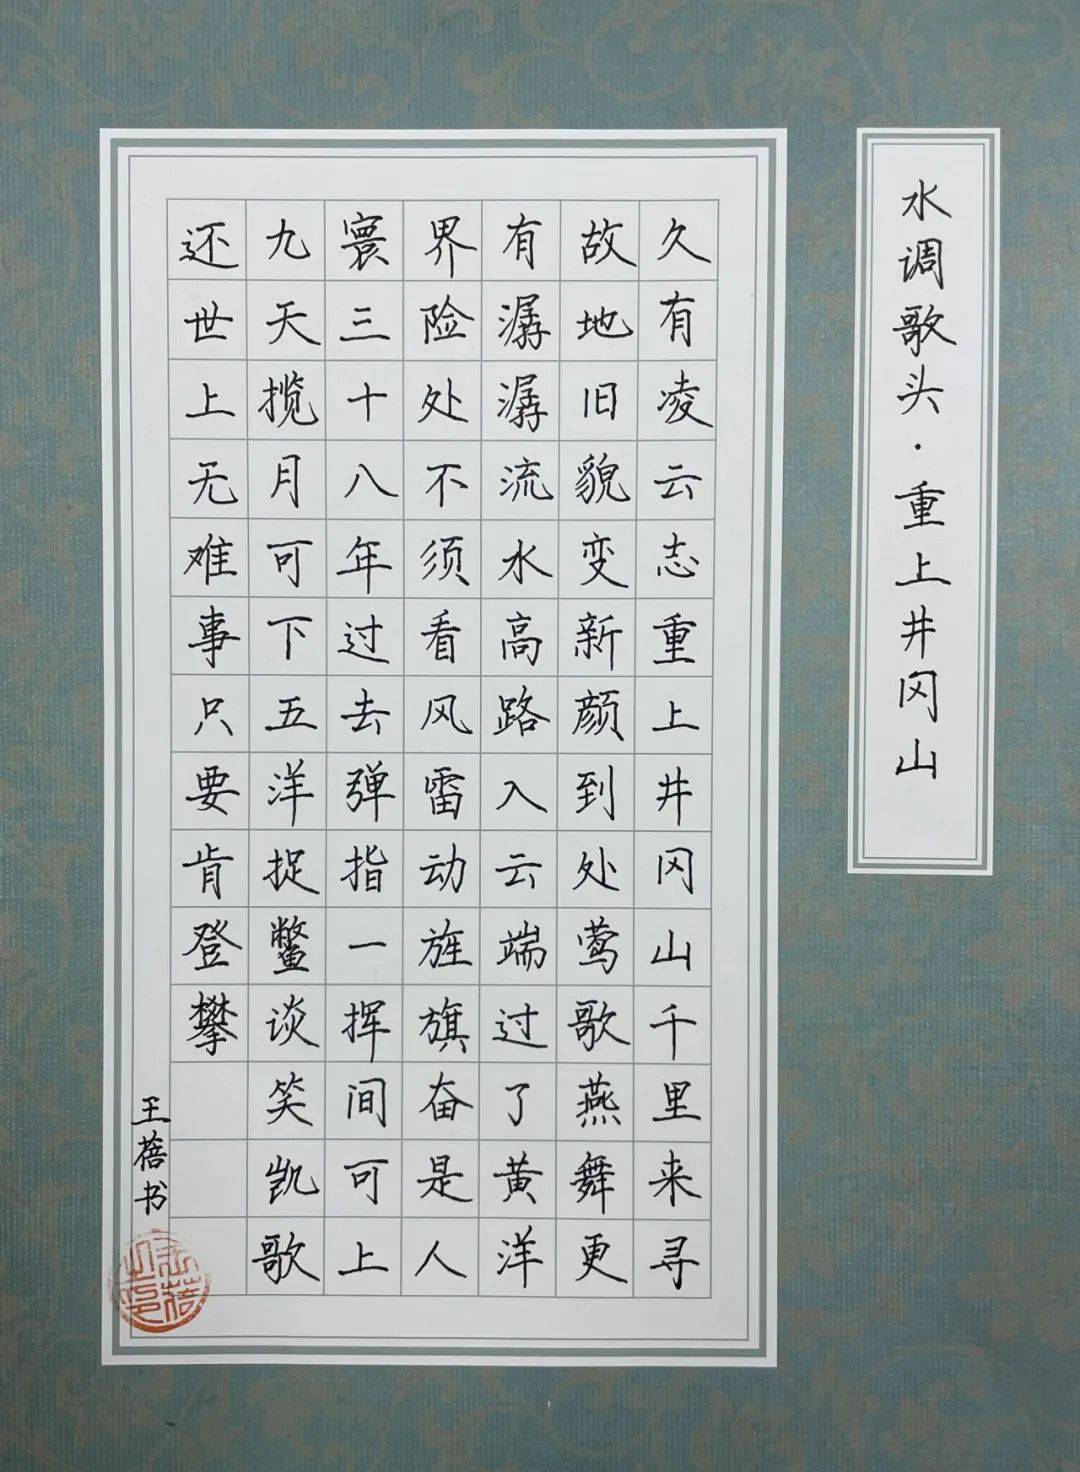 水调歌头·重上井冈山
久有凌云志重上井冈山千里来寻
故地旧貌变新颜到处莺歌燕舞更
有潺潺流水高路入云端过了黄洋
界险处不须看风雷动旌旗奋是人
寰三十八年过去弹指一挥间可上
九天揽月可下五洋捉鳖谈笑凯歌
还世上无难事只要肯登攀
王蓓书